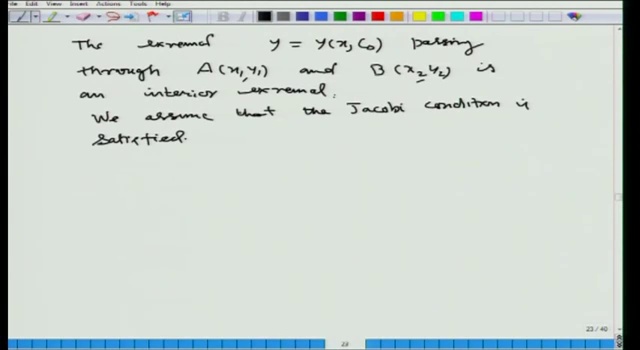 File Edit View Insert Actions Tools Help
The extremal y = y(x, c₀) passing
through A(x₁, y₁) and B(x₂, y₂) is
an interior extremal.
We assume that the Jacobi condition is
satisfied.
23 / 40
23